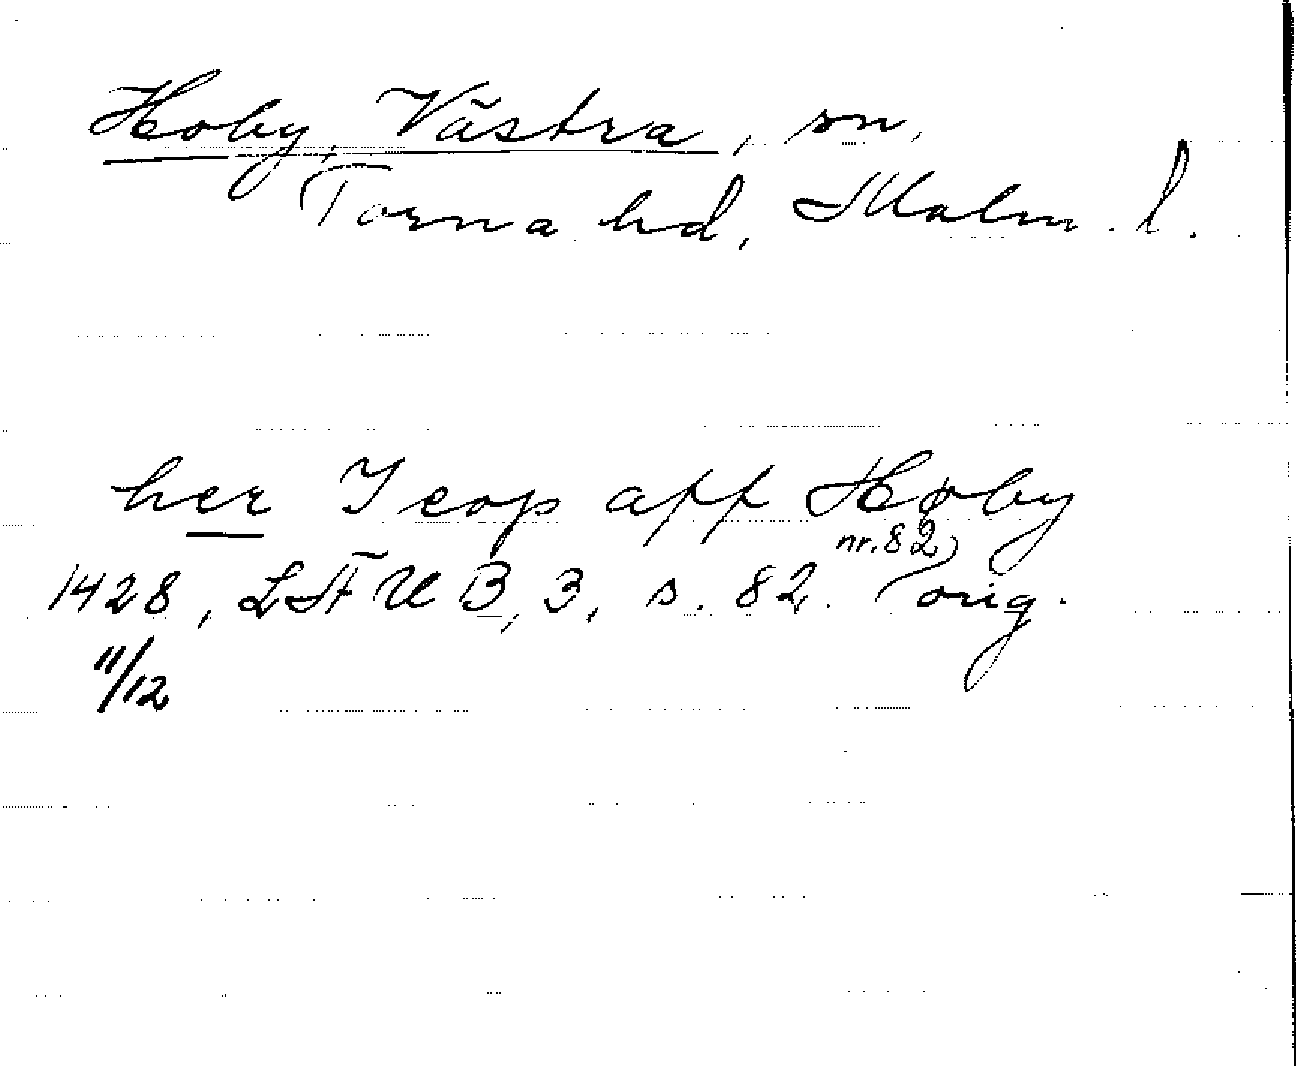 Hoby, Västra, sn,
Torna hd, Malm. l.
her Jeop aff Høby
nr. 82
1428, LÄUB, 3, s. 82. orig.
11/12